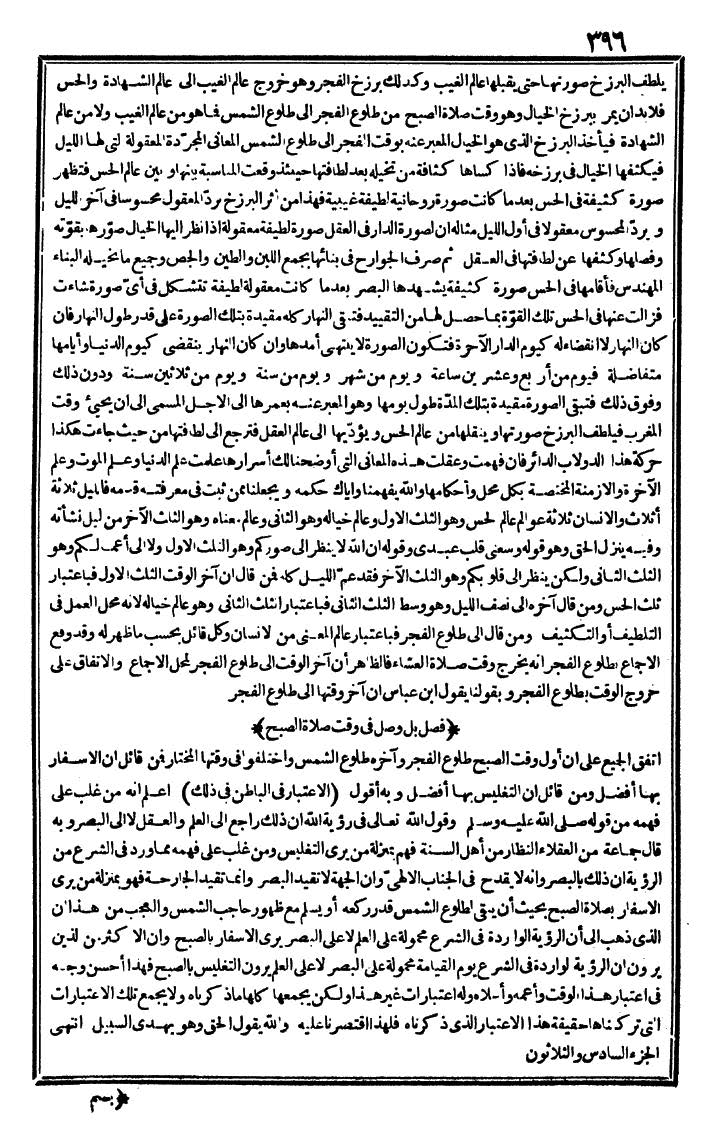 ٣٩٦
يلطف البرزخ صورتها حتى يقبلها عالم الغيب وكذلك برزخ الفجر وهو خروج عالم الغيب الى عالم الشهادة والحس
فلا بد ان يمر ببرزخ الخيال وهو وقت صلاة الصبح من طلوع الفجر الى طلوع الشمس فاهو من عالم الغيب ولا من عالم
الشهادة فيأخذ البرزخ الذى هو الخيال المعبر عنه بوقت الفجر الى طلوع الشمس المعانى المجرّدة المعقولة لتى لها الليل
فيكثفها الخيال فى برزخه فاذا كساها كثافة من تخيله بعد لطافتها حينئذ وقعت المناسبة بينها و بين عالم الحس فتظهر
صورة كثيفة فى الحس بعد ما كانت صورة روحانية لطيفة غيبية فهذا من أثر البرزخ بردّ المعقول محسوسا فى آخر لليل
و يردّ المحسوس معقولا فى أول الليل مثاله ان لصورة الدار فى العقل صورة لطيفة معقولة اذا نظر اليها الخيال صوّرها بقوّته
وفصلها وكثفها عن لطافتها فى العقل ثم صرف الجوارح فى بنائها بجمع اللبن والطين والجص وجميع ما تخيله البناء
المهندس فأقامها فى الحس صورة كثيفة يشهدها البصر بعد ما كانت معقولة لطيفة تتشكل فى أىّ صورة شاءت
فزالت عنها فى الحس تلك القوّة بما حصل لها من التقييد فتبقى النهار كله مقيدة بتلك الصورة على قدر طول النهار فان
كان النهار لا انقضاء له كيوم الدار الآخرة فتكون الصورة لا ينتهى أمدها وان كان النهار ينقضى كيوم الدنيا وأيامها
متفاضلة فيوم من أربع وعشرين ساعة و يوم من شهر و يوم من سنة و يوم من ثلاثين سنة ودون ذلك
وفوق ذلك فتبقى الصورة مقيدة بتلك المدّة طول يومها وهو المعبر عنه بعمرها الى الاجل المسمى الى ان يجىء وقت
المغرب فيلطف البرزخ صورتها و ينقلها من عالم الحس و يؤدّيها الى عالم العقل فترجع الى لطافتها من حيث جاءت هكذا
حركة هذا الدولاب الدائر فان فهمت وعقلت هذه المعانى التى أوضحنا لك أسرارها علمت علم الدنيا وعلم الموت وعلم
الآخرة والازمنة المختصة بكل محل وأحكامها والله يفهمنا واياك حكمه و يجعلنا ممن ثبت فى معرفته قدمه فالليل ثلاثة
أثلاث والانسان ثلاثة عوالم عالم لحس وهو الثلث الاول وعالم خياله وهو الثانى وعالم معناه وهو الثلث الآخر من ليل نشأته
وفيه ينزل الحق وهو قوله وسعنى قلب عبدى وقوله ان الله لا ينظر الى صوركم وهو الثلث الاول ولا الى أعمالكم وهو
الثلث الثانى ولكن ينظر الى قلوبكم وهو الثلث الآخر فقد عمّ الليل كله فمن قال ان آخر الوقت الثلث الاول فباعتبار
ثلث الحس ومن قال آخره الى نصف الليل وهو وسط الثلث الثانى فباعتبار الثلث الثانى وهو عالم خياله لانه محل العمل فى
التلطيف أو التكثيف ومن قال الى طلوع الفجر فباعتبار عالم المعنى من لانسان وكل قائل بحسب ما ظهر له وقد وقع
الاجماع بطلوع الفجر انه يخرج وقت صلاة العشاء فالظاهر أن آخر الوقت الى طلوع الفجر لمحل الاجماع والاتفاق على
خروج الوقت بطلوع الفجر و بقولنا يقول ابن عباس ان آخر وقتها الى طلوع الفجر
﴿فصل بل وصل فى وقت صلاة الصبح﴾
اتفق الجميع على ان أول وقت الصبح طلوع الفجر وآخره طلوع الشمس واختلفوا فى وقتها المختار فمن قائل ان الاسفار
بها أفضل ومن قائل ان التغليس بها أفضل و به أقول (الاعتبار فى الباطن فى ذلك) اعلم انه من غلب على
فهمه من قوله صلى الله عليه وسلم وقول الله تعالى فى رؤية الله ان ذلك راجع الى العلم والعقل لا الى البصر و به
قال جماعة من العقلاء النظار من أهل السنة فهم بمنزلة من يرى التغليس ومن غلب على فهمه ما ورد فى الشرع من
الرؤية ان ذلك بالبصر وانه لا يقدح فى الجناب الالهىّ وان الجهة لا تقيد البصر وانما تقيد الجارحة فهو بمنزلة من يرى
الاسفار بصلاة الصبح بحيث أن يبقى لطلوع الشمس قدر ركعة أو يسلم مع ظهور حاجب الشمس والعجب من هذا ان
الذى ذهب الى أن الرؤية الواردة فى الشرع محمولة على العلم لا على البصر يرى الاسفار بالصبح وان الاكثر من لذين
يرون ان الرؤية لواردة فى الشرع يوم القيامة محمولة على البصر لا على العلم يرون التغليس بالصبح فهذا أحسن وجه
فى اعتبار هذا الوقت وأعمه وأعلاه وله اعتبارات غير هذا ولكن يجمعها كلها ما ذكرناه ولا يجمع تلك الاعتبارات
التى تركناها حقيقة هذا الاعتبار الذى ذكرناه فلهذا اقتصرنا عليه والله يقول الحق وهو يهدى السبيل انتهى
الجزء السادس والثلاثون
﴿بسم